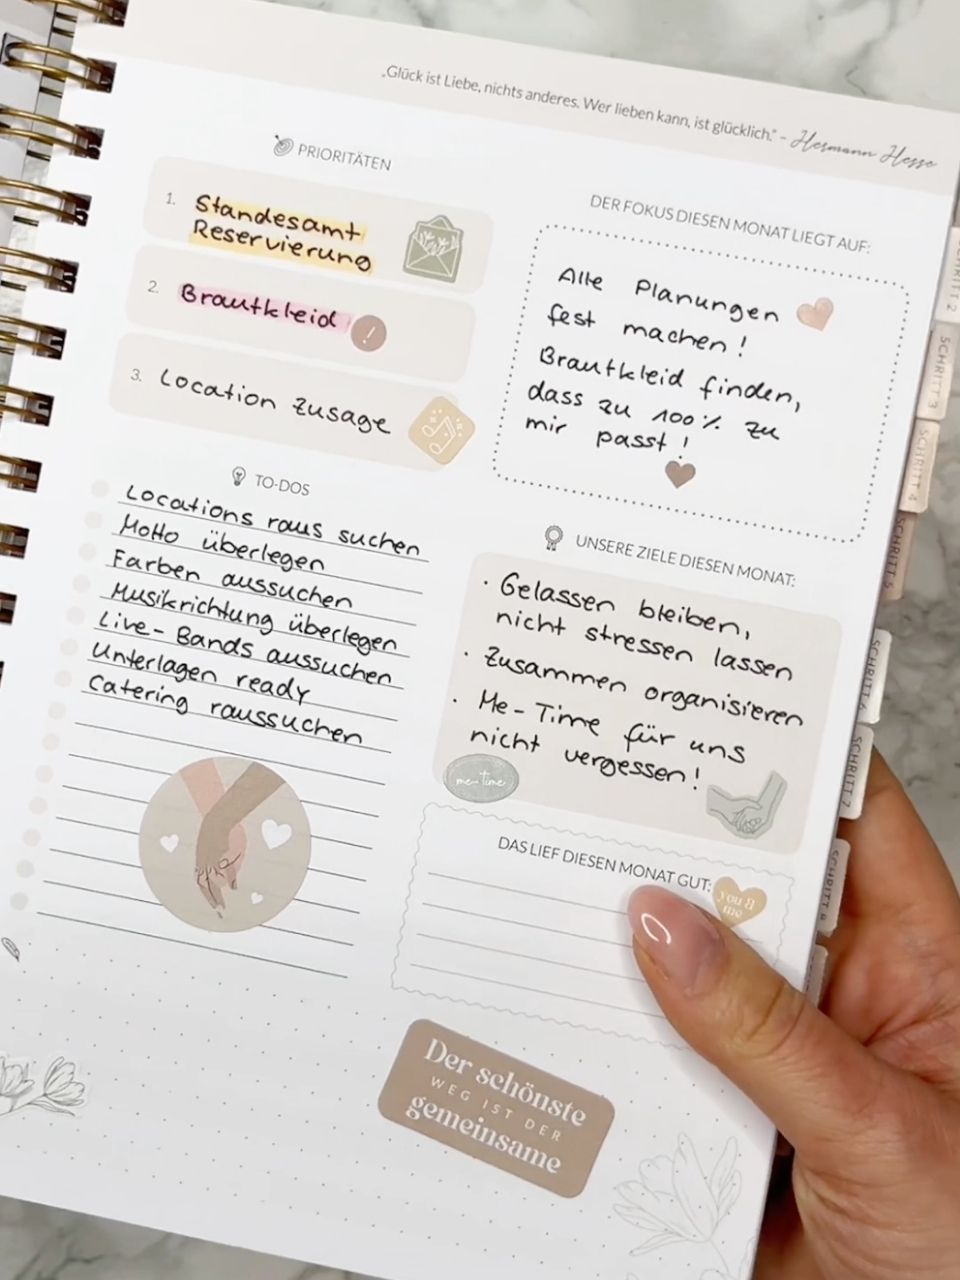 „Glück ist Liebe, nichts anderes. Wer lieben kann, ist glücklich.“ – Hermann Hesse
PRIORITÄTEN
1. Standesamt
Reservierung
2. Brautkleid !
3. Location Zusage
TO-DOS
Locations raus suchen
Motto überlegen
Farben aussuchen
Musikrichtung überlegen
Live-Bands aussuchen
Unterlagen ready
Catering raussuchen
DER FOKUS DIESEN MONAT LIEGT AUF:
Alle Planungen
fest machen!
Brautkleid finden,
dass zu 100% zu
mir passt!
UNSERE ZIELE DIESEN MONAT:
· Gelassen bleiben,
nicht stressen lassen
· Zusammen organisieren
· Me-Time für uns
nicht vergessen!
me-time
DAS LIEF DIESEN MONAT GUT:
you &
me
Der schönste
WEG IST DER
gemeinsame
SCHRITT 2
SCHRITT 3
SCHRITT 4
SCHRITT 5
SCHRITT 6
SCHRITT 7
SCHRITT 8